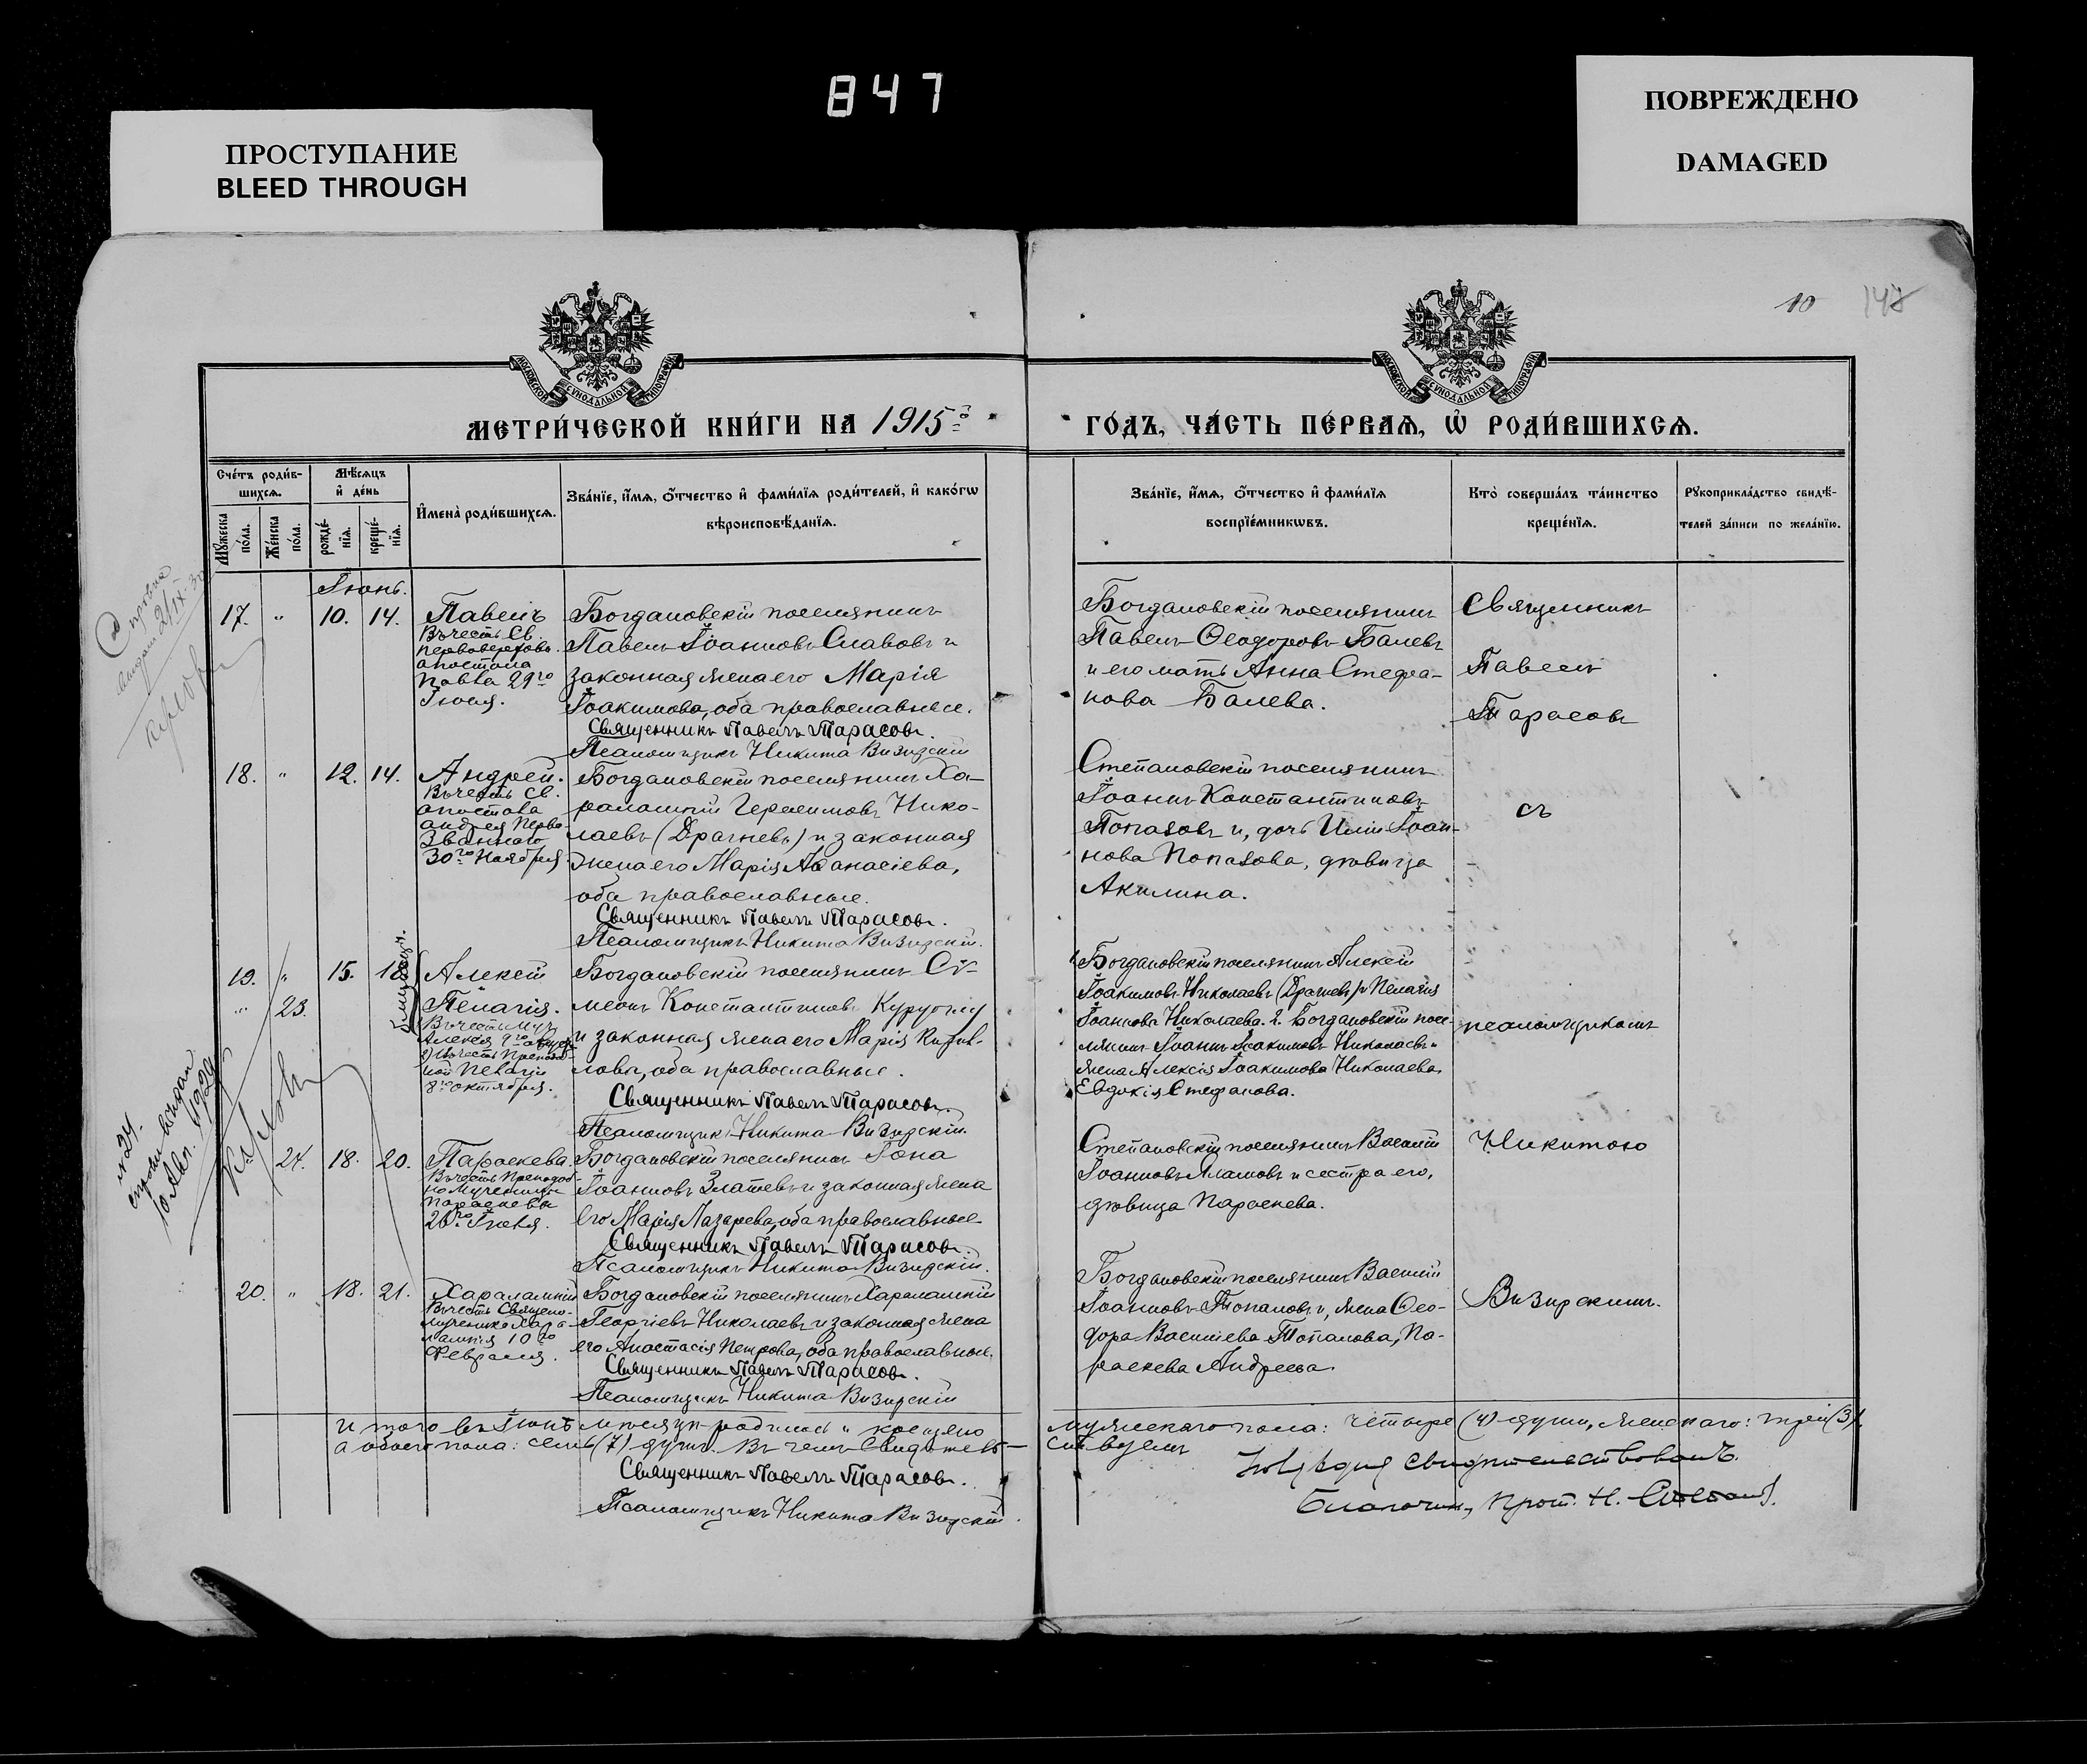 847
ПРОСТУПАНИЕ
BLEED THROUGH
ПОВРЕЖДЕНО
DAMAGED
10
148
МОСКОВСКОЙ СУНОДАЛЬНОЙ ТИПОГРАФІИ
МОСКОВСКОЙ СУНОДАЛЬНОЙ ТИПОГРАФІИ
МЕТРИ́ЧЕСКОЙ КНИ́ГИ НА 1915й
ГО́ДЪ, ЧА́СТЬ ПЕ́РВАѦ, Ѡ҆ РОДИ́ВШИХСѦ.
Сче́тъ роди́в-
шихсѧ.
Мѣ́сѧцъ
и҆ де́нь
Мꙋ́жеска
по́ла.
Же́нска
по́ла.
рожде́-
нїѧ.
креще́-
нїѧ.
И҆мена̀ роди́вшихсѧ.
Зва́нїе, и҆́мѧ, ѻ҆́тчество и҆ фами́лїѧ роди́телей, и҆ како́гѡ
вѣроисповѣ́данїѧ.
Зва́нїе, и҆́мѧ, ѻ҆́тчество и҆ фами́лїѧ
воспрїе́мникѡвъ.
Кто̀ соверша́лъ та́инство
креще́нїѧ.
Рꙋкоприкла́дство свидѣ́-
телей за́писи по жела́нїю.
Іюнь.
17. " 10. 14. Павелъ
Въ честь Св.
первоверховн.
апостола
Павла 29го
Іюня.
Богдановскій поселянинъ
Павелъ Іоанновъ Славовъ и
законная жена его Марія
Іоакимова, оба православные.
Священникъ Павелъ Тарасовъ.
Псаломщикъ Никита Визирскій
Богдановскій поселянинъ
Павелъ Ѳеодоровъ Балевъ
и его мать Анна Стефа-
нова Балева.
Священникъ
Павелъ
Тарасовъ
18. " 12. 14. Андрей.
Въ честь Св.
апостола
Андрея Перво-
званнаго
30го Ноября.
Богдановскій поселянинъ Ха-
рлампій Герасимовъ Нико-
лаевъ (Драгневъ) и законная
жена его Марія Аѳанасіева,
оба православные.
Священникъ Павелъ Тарасовъ.
Псаломщикъ Никита Визирскій.
Степановскій поселянинъ
Іоаннъ Константиновъ
Попазовъ и, дочь Иліи Іоан-
нова Попазова, дѣвица
Акилина.
съ
19. " 15. 18. Алексій
" 23. Пелагія.
8го октября.
Богдановскій поселянинъ Сѵ-
меонъ Константиновъ Куруогл​у
и законная жена его Марія Кирил-
лова, оба православные.
Священникъ Павелъ Тарасовъ.
Псаломщикъ Никита Визирскій.
Богдановскій поселянинъ Алексій
Іоакимовъ Николаевъ (Драгневъ) и Пелагія
Іоаннова Николаева. 2. Богдановскій посе-
лянинъ Іоаннъ Іоакимовъ Николаевъ и
жена Алексія Іоакимова Николаева
Евдокія Стефанова.
псаломщикомъ
24. 18. 20. Параскева.
Въ честь Преподоб-
номученицы
Параскевы
26го Іюля.
Богдановскій поселянинъ Іона
Іоанновъ Златевъ и законная жена
его Марія Лазарева, оба православные
Священникъ Павелъ Тарасовъ.
Псаломщикъ Никита Визирскій.
Степановскій поселянинъ Василій
Іоанновъ и сестра его,
дѣвица Параскева.
Никитою
20. " 18. 21. Харалампій
Въ честь Священо-
мученика Хара-
лампія 10го
Февраля.
Богдановскій поселянинъ Харалампій
Георгіевъ Николаевъ и законная жена
его Анастасія Петрова, оба православные.
Священникъ Павелъ Тарасовъ.
Псаломщикъ Никита Визирскій
Богдановскій поселянинъ Василій
Іоанновъ Топаловъ и, жена Ѳео-
дора Васильева Топалова, Па-
раскева Андреева.
Визирскимъ.
Итого въ Іюнѣ мѣсяцѣ родилось и крещено
мужескаго пола: четыре (4) души, женскаго: три (3),
а обоего пола: семь (7) душъ. Въ чемъ свидѣтель-
ствуемъ
Священникъ Павелъ Тарасовъ.
Псаломщикъ Никита Визирскій.
свидѣтельствовалъ.
Благочин. Прот. Н.
№ 24.
10 Авг. 1929